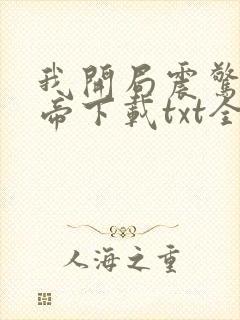 我開局震驚
帝下載txt全
人海之重